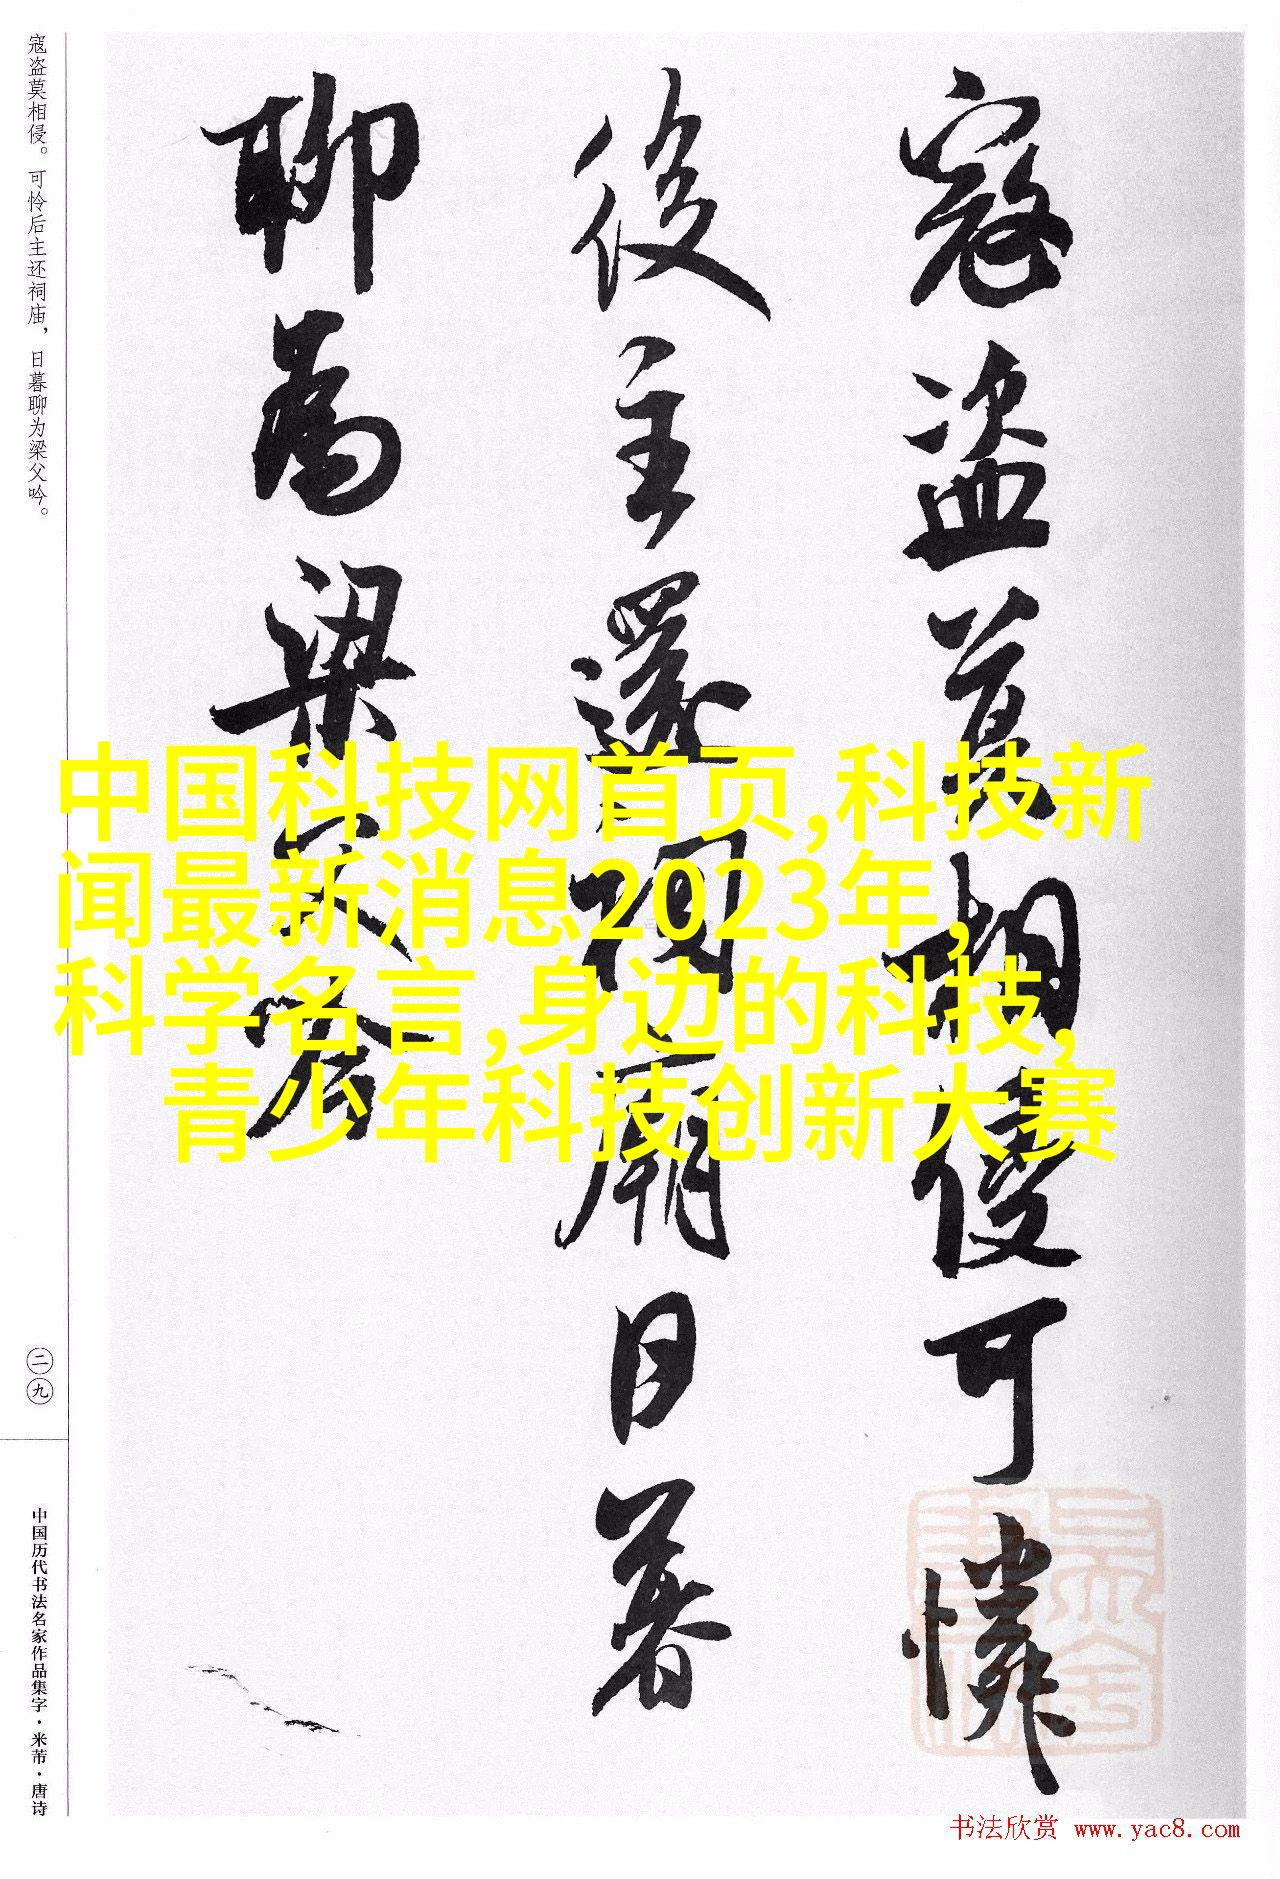 寇盗莫相侵。可怜后主还祠庙，日暮聊为梁父吟。
寇盗莫相侵可憐
後主還祠廟日暮
聊為梁父吟
中国科技网首页,科技新
闻最新消息2023年,
科学名言,身边的科技,
青少年科技创新大赛
二九
中国历代书法名家作品集字·米芾·唐诗
书法欣赏 www.yac8.com